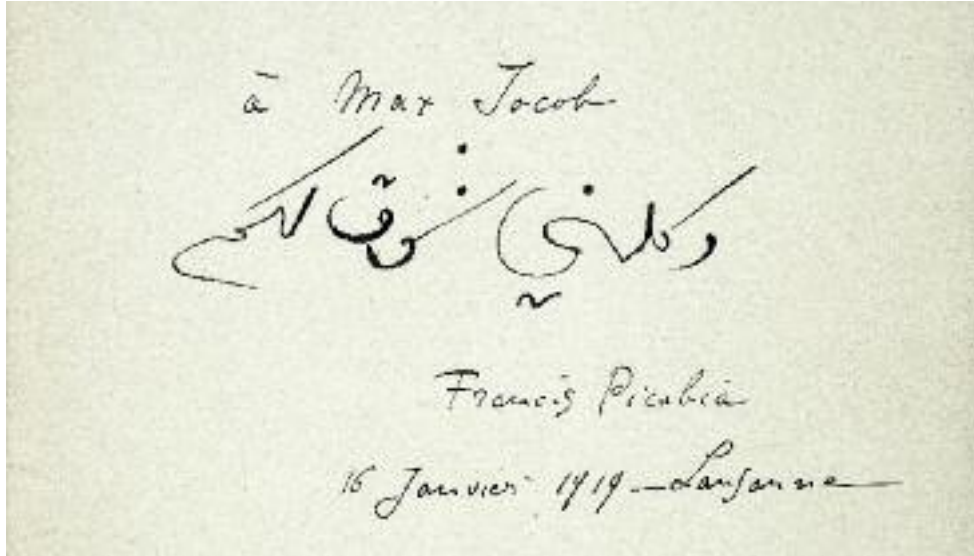 à Max Jacob
وكلني شوق لكم
Francis Picabia
16 Janvier 1919 — Lausanne